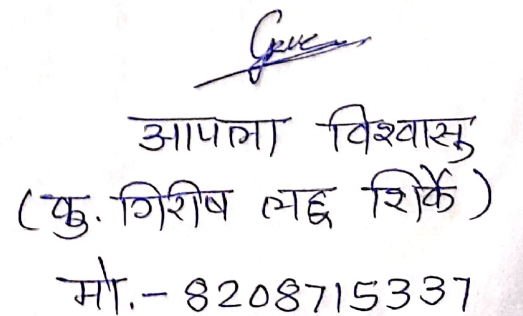 आपला विश्वासु
(कु. गिरीष लद्द शिर्के)
मो.- 8208715337